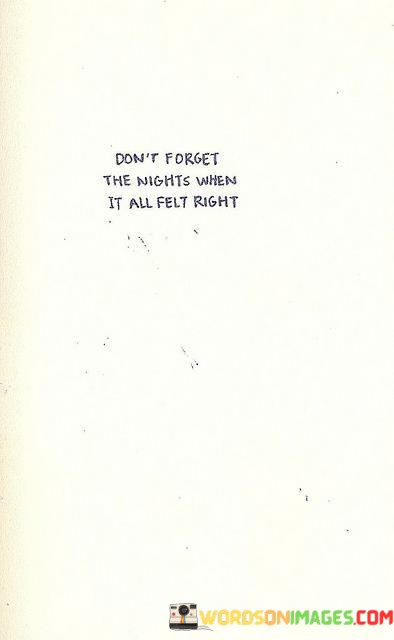 DON'T FORGET
THE NIGHTS WHEN
IT ALL FELT RIGHT
WORDSONIMAGES.COM